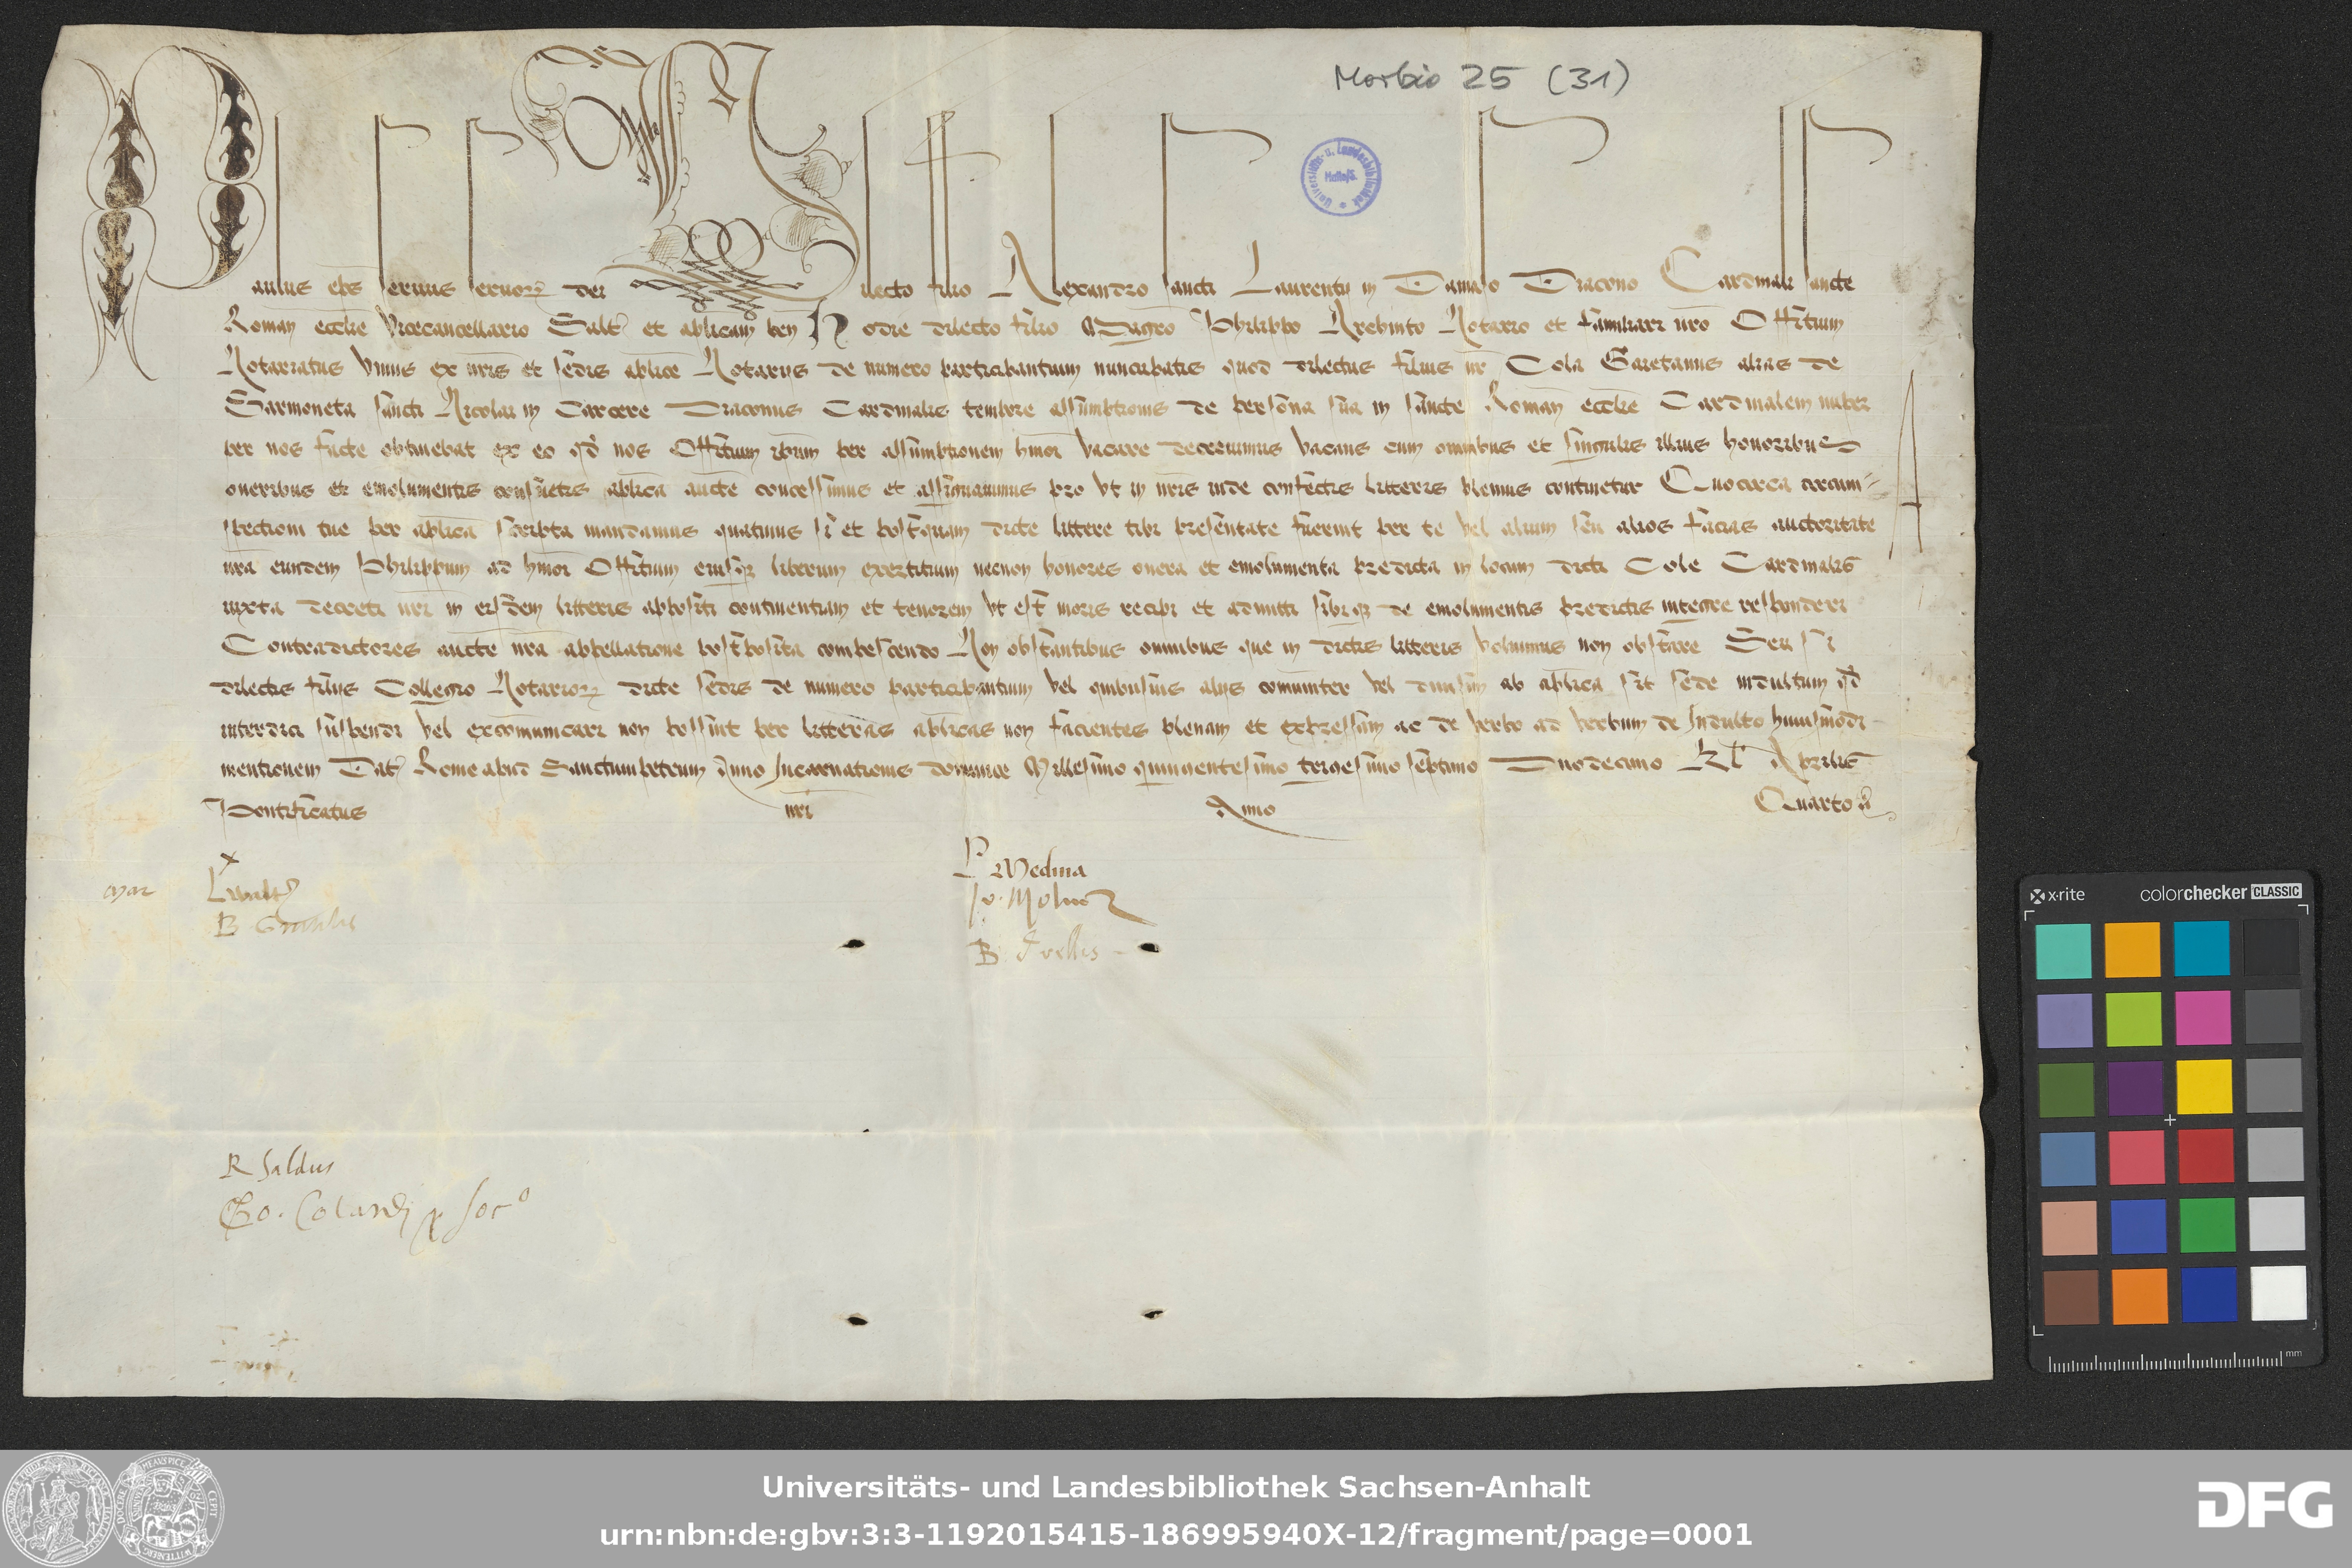 Morbio 25 (31)
Universitäts- u. Landesbibliothek Halle/S.
Paulus eps servus servorꝝ dei Dilecto filio Alexandro sancti Laurentii in Damaso Diacono Cardinali sancte
Roman ecclie Vicecancellario Salt et aplicam ben Hodie dilecto filio Magro Philippo Archinto Notario et familiari nro Offitium
Notariatus Unius ex nris et sedis aplice Notariis de numero participantium nuncupatis quod dilectus filius nr Cola Gaietanus alias de
Sarmoneta sancti Nicolai in Carcere Diaconus Cardinalis tempore assumptionis de persona sua in sancte Roman ecclie Cardinalem nuper
per nos facte obtinebat ex eo qd nos Offitium ipsum per assumptionem hmoi vacare decrevimus vacans cum omnibus et singulis illius honoribus
oneribus et emolumentis consuetis aplica aucte concessimus et assignavimus pro ut in nris inde confectis litteris plenius continetur Quocirca circum-
spectioni tue per aplica scripta mandamus quatinus si et postquam dicte littere tibi presentate fuerint per te vel alium seu alios facias auctoritate
nra eundem Philippum ad hmoi Offitium eiusqꝫ liberum exercitium necnon honores onera et emolumenta predicta in locum dicti Cole Cardinalis
iuxta decreti nri in eisdem litteris appositi continentiam et tenorem ut est moris recipi et admitti sibiqꝫ de emolumentis predictis integre responderi
Contradictores aucte nra appellatione postposita compescendo Non obstantibus omnibus que in dictis litteris volumus non obstare Seu si
dilectis filiis Collegio Notariorꝝ dicte sedis de numero participantium vel quibusvis aliis comuniter vel divisim ab aplica sit sede indultum qd
interdici suspendi vel excomunicari non possint per litteras aplicas non facientes plenam et expressam ac de verbo ad verbum de Indulto huiusmodi
mentionem Dat Rome apud Sanctumpetrum Anno Incarnationis dominice Millesimo quingentesimo trigesimo septimo Duodecimo Kl Aprilis
Pontificatus nri Anno Quarto
x
P Medina
Mar
Jo. Molner
B
B.
R Saldus
Go. Colardi x soc°
x-rite colorchecker CLASSIC
mm
Universitäts- und Landesbibliothek Sachsen-Anhalt
urn:nbn:de:gbv:3:3-1192015415-186995940X-12/fragment/page=0001
DFG